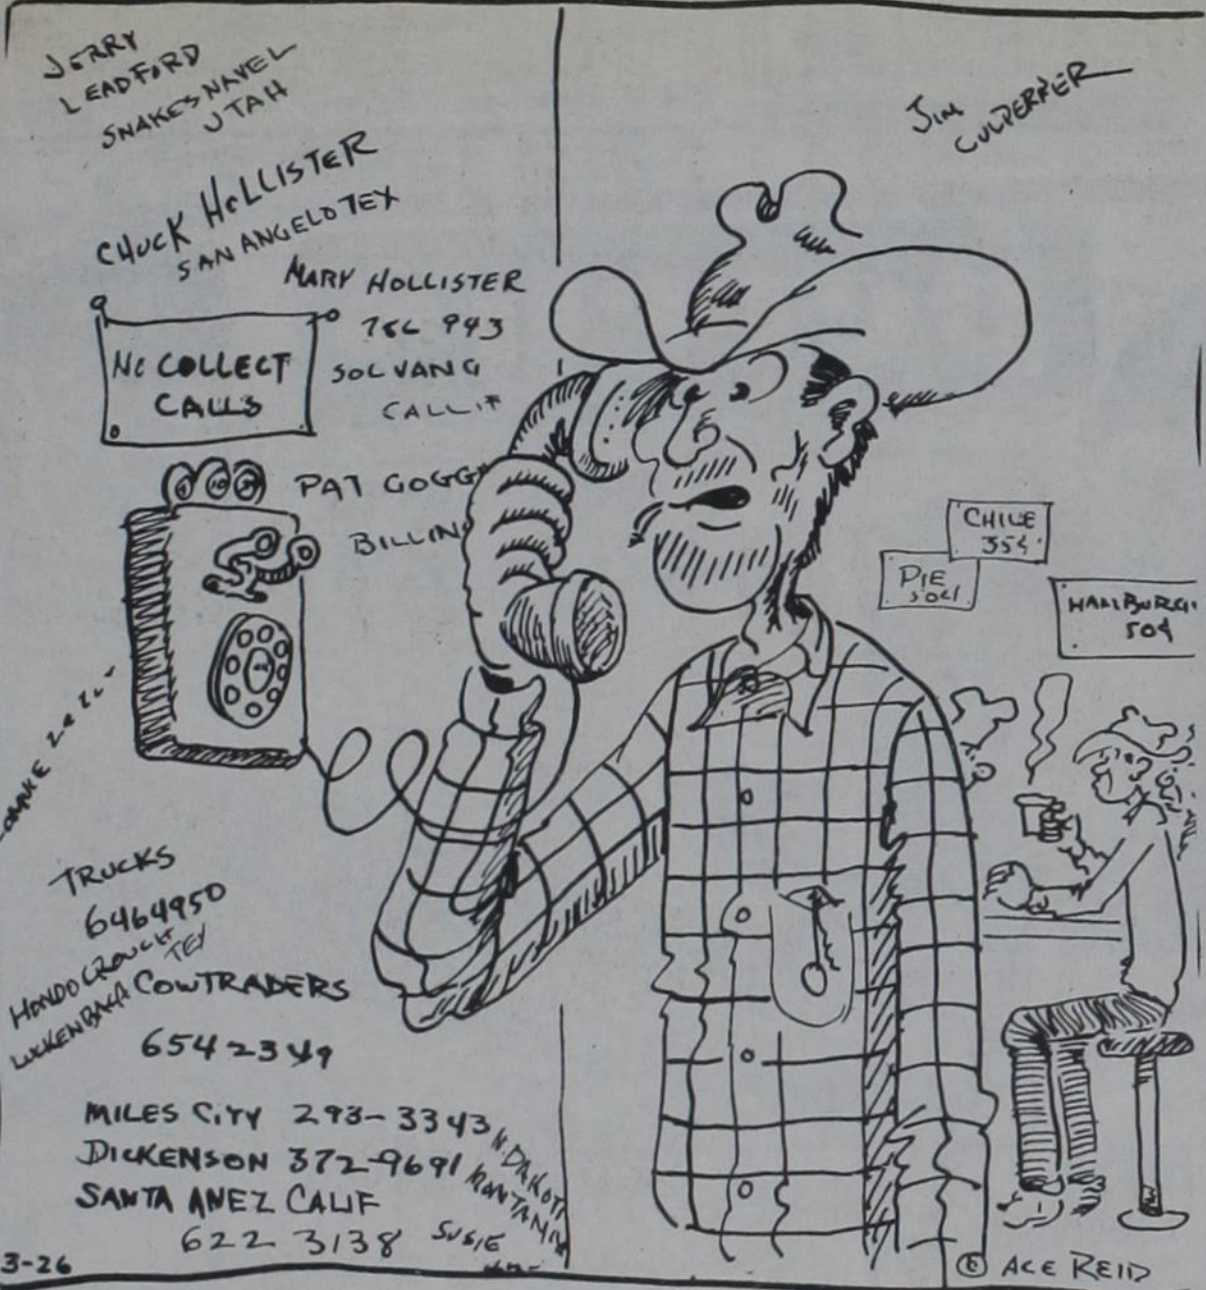 JERRY
LEADFORD
SNAKESNAVEL
UTAH
JIM
CULPERPER
CHUCK HOLLISTER
SAN ANGELO TEX
MARY HOLLISTER
943
SOLVANG
CALLIF
NO COLLECT
CALLS
PAT GOGG
BILLIN
CHILE
35¢
PIE
50¢
HAMBURG
50¢
TRUCKS
6464950
HONDO CROUCH
TEX
LUCKENBACH
COWTRADERS
6542349
MILES CITY 293-3343
DICKENSON 372-9691
N. DAKOT
MONTANA
SANTA ANEZ CALIF
622 3138
SUSIE
3-26
© ACE REID